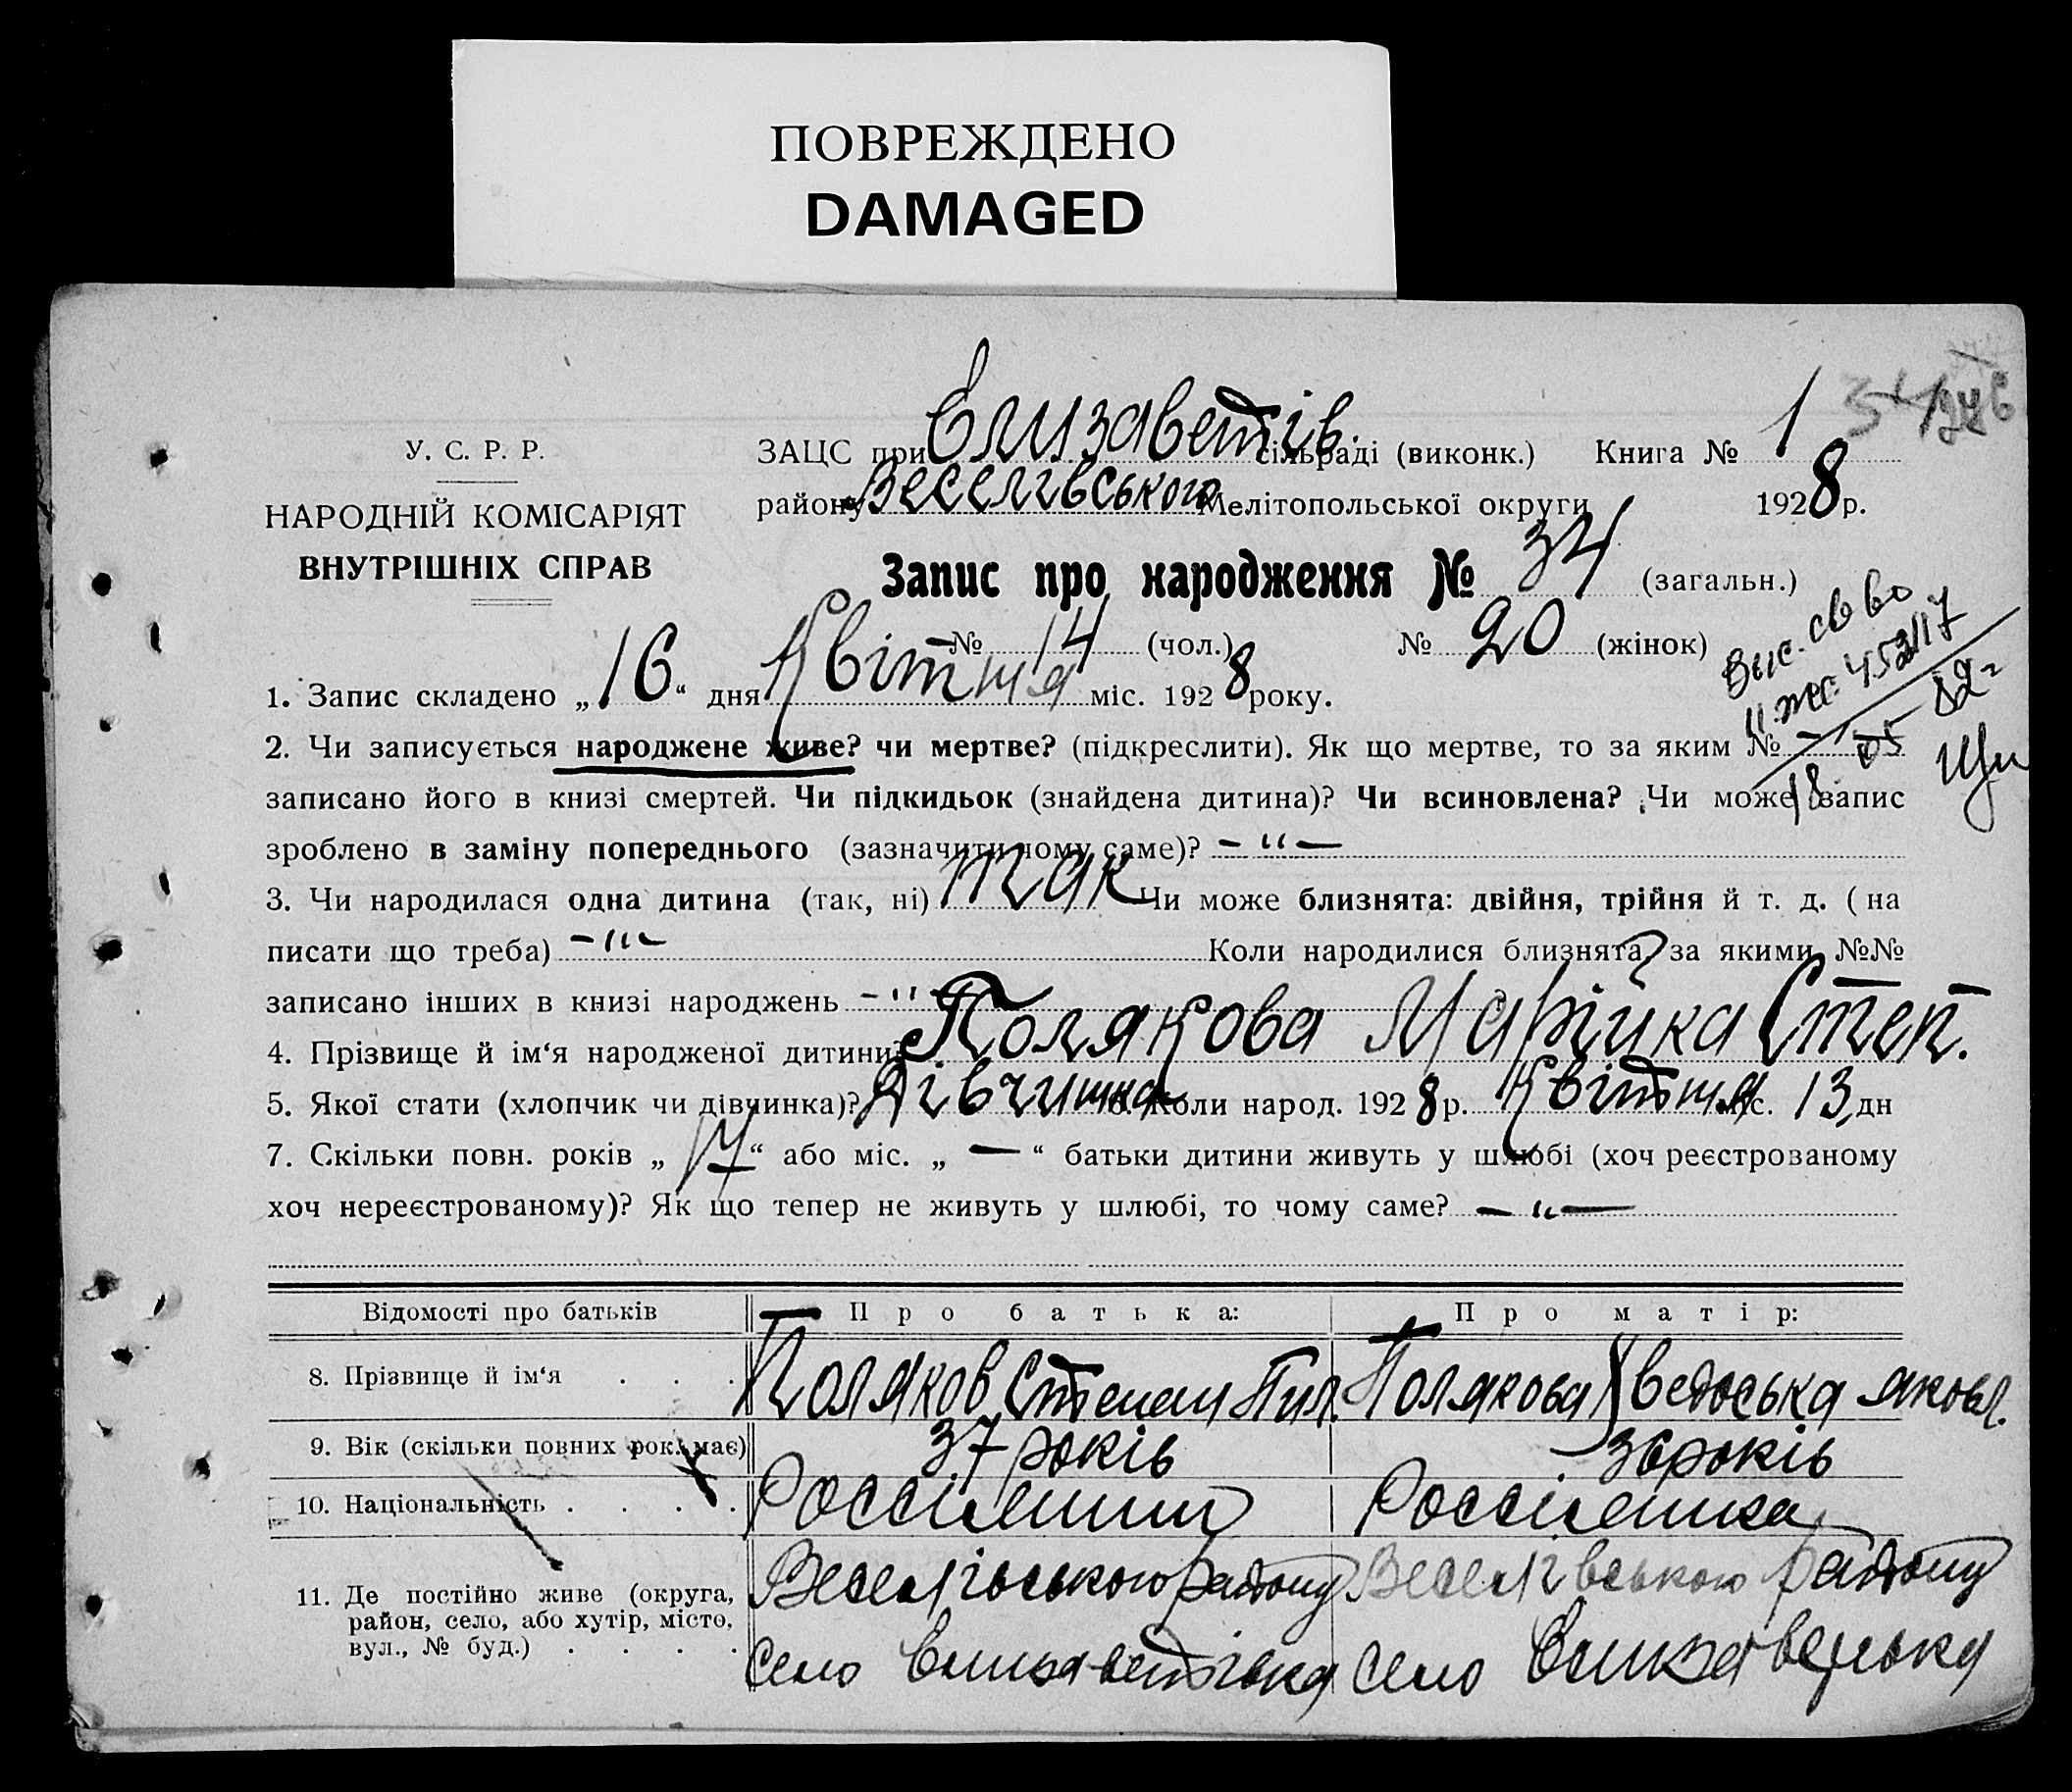 ПОВРЕЖДЕНО
DAMAGED
У. С. Р. Р.
НАРОДНІЙ КОМІСАРІЯТ
ВНУТРІШНІХ СПРАВ
ЗАЦС при Елизаветів. сільраді (виконк.) Книга № 1
району Веселівського Мелітопольської округи 1928 р.
Запис про народження № 34 (загальн.)
№ 14 (чол.) № 20 (жінок)
Выс. св во
18 05 82г
1. Запис складено „16“ дня Квітня міс. 1928 року.
2. Чи записується народжене живе? чи мертве? (підкреслити). Як що мертве, то за яким № –
записано його в книзі смертей. Чи підкидьок (знайдена дитина)? Чи всиновлена? Чи може запис
зроблено в заміну попереднього (зазначити чому саме)? – “ –
3. Чи народилася одна дитина (так, ні) так Чи може близнята: двійня, трійня й т. д. (на
писати що треба) – “ – Коли народилися близнята, за якими №№
записано інших в книзі народжень – “ –
4. Прізвище й ім‘я народженої дитини? Полякова Марійка Степ.
5. Якої стати (хлопчик чи дівчинка)? Дівчинка 6. Коли народ. 1928 р. Квітня міс. 13 дн
7. Скільки повн. років „17“ або міс. „ — “ батьки дитини живуть у шлюбі (хоч реєстрованому
хоч нереєстрованому)? Як що тепер не живуть у шлюбі, то чому саме? – “ –
Відомості про батьків Про батька: Про матір:
8. Прізвище й ім‘я . . . Поляков Степан Пил. Полякова Хведоська Яковл.
9. Вік (скільки повних рок. має) 37 років 36 років
10. Національність . . . . Россіянин Россіянка
11. Де постійно живе (округа, район, село, або хутір, місто, вул., № буд.) . . . .
Веселівського району Веселівського району
село Елизаветівка село Елизаветівка